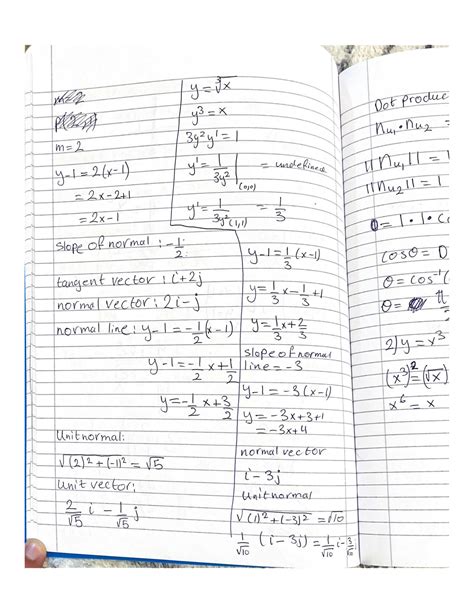 m=2
y-1=2(x-1)
=2x-2+1
=2x-1
slope of normal: -1/2
tangent vector: i+2j
normal vector: 2i-j
normal line: y-1=-1/2(x-1)
y-1=-1/2x+1/2
y=-1/2x+3/2
Unit normal:
√(2)²+(-1)² = √5
Unit vector:
2/√5 i - 1/√5 j
y=∛x
y³=x
3y²y'=1
y'=1/3y² |(0,0) = undefined
y'=1/3y² (1,1) = 1/3
y-1=1/3(x-1)
y=1/3x-1/3+1
y=1/3x+2/3
slope of normal
line=-3
y-1=-3(x-1)
y=-3x+3+1
=-3x+4
normal vector
i-3j
Unit normal
√(1)²+(-3)² = √10
1/√10 (i-3j)=1/√10 i-3/√10
Dot Produc
nu₁•nu₂ =
||nu₁||=1
||nu₂||=1
0=1•1•c
cosθ=0
θ=cos⁻¹(
θ=
2) y=x³
(x³)²=(√x)
x⁶=x